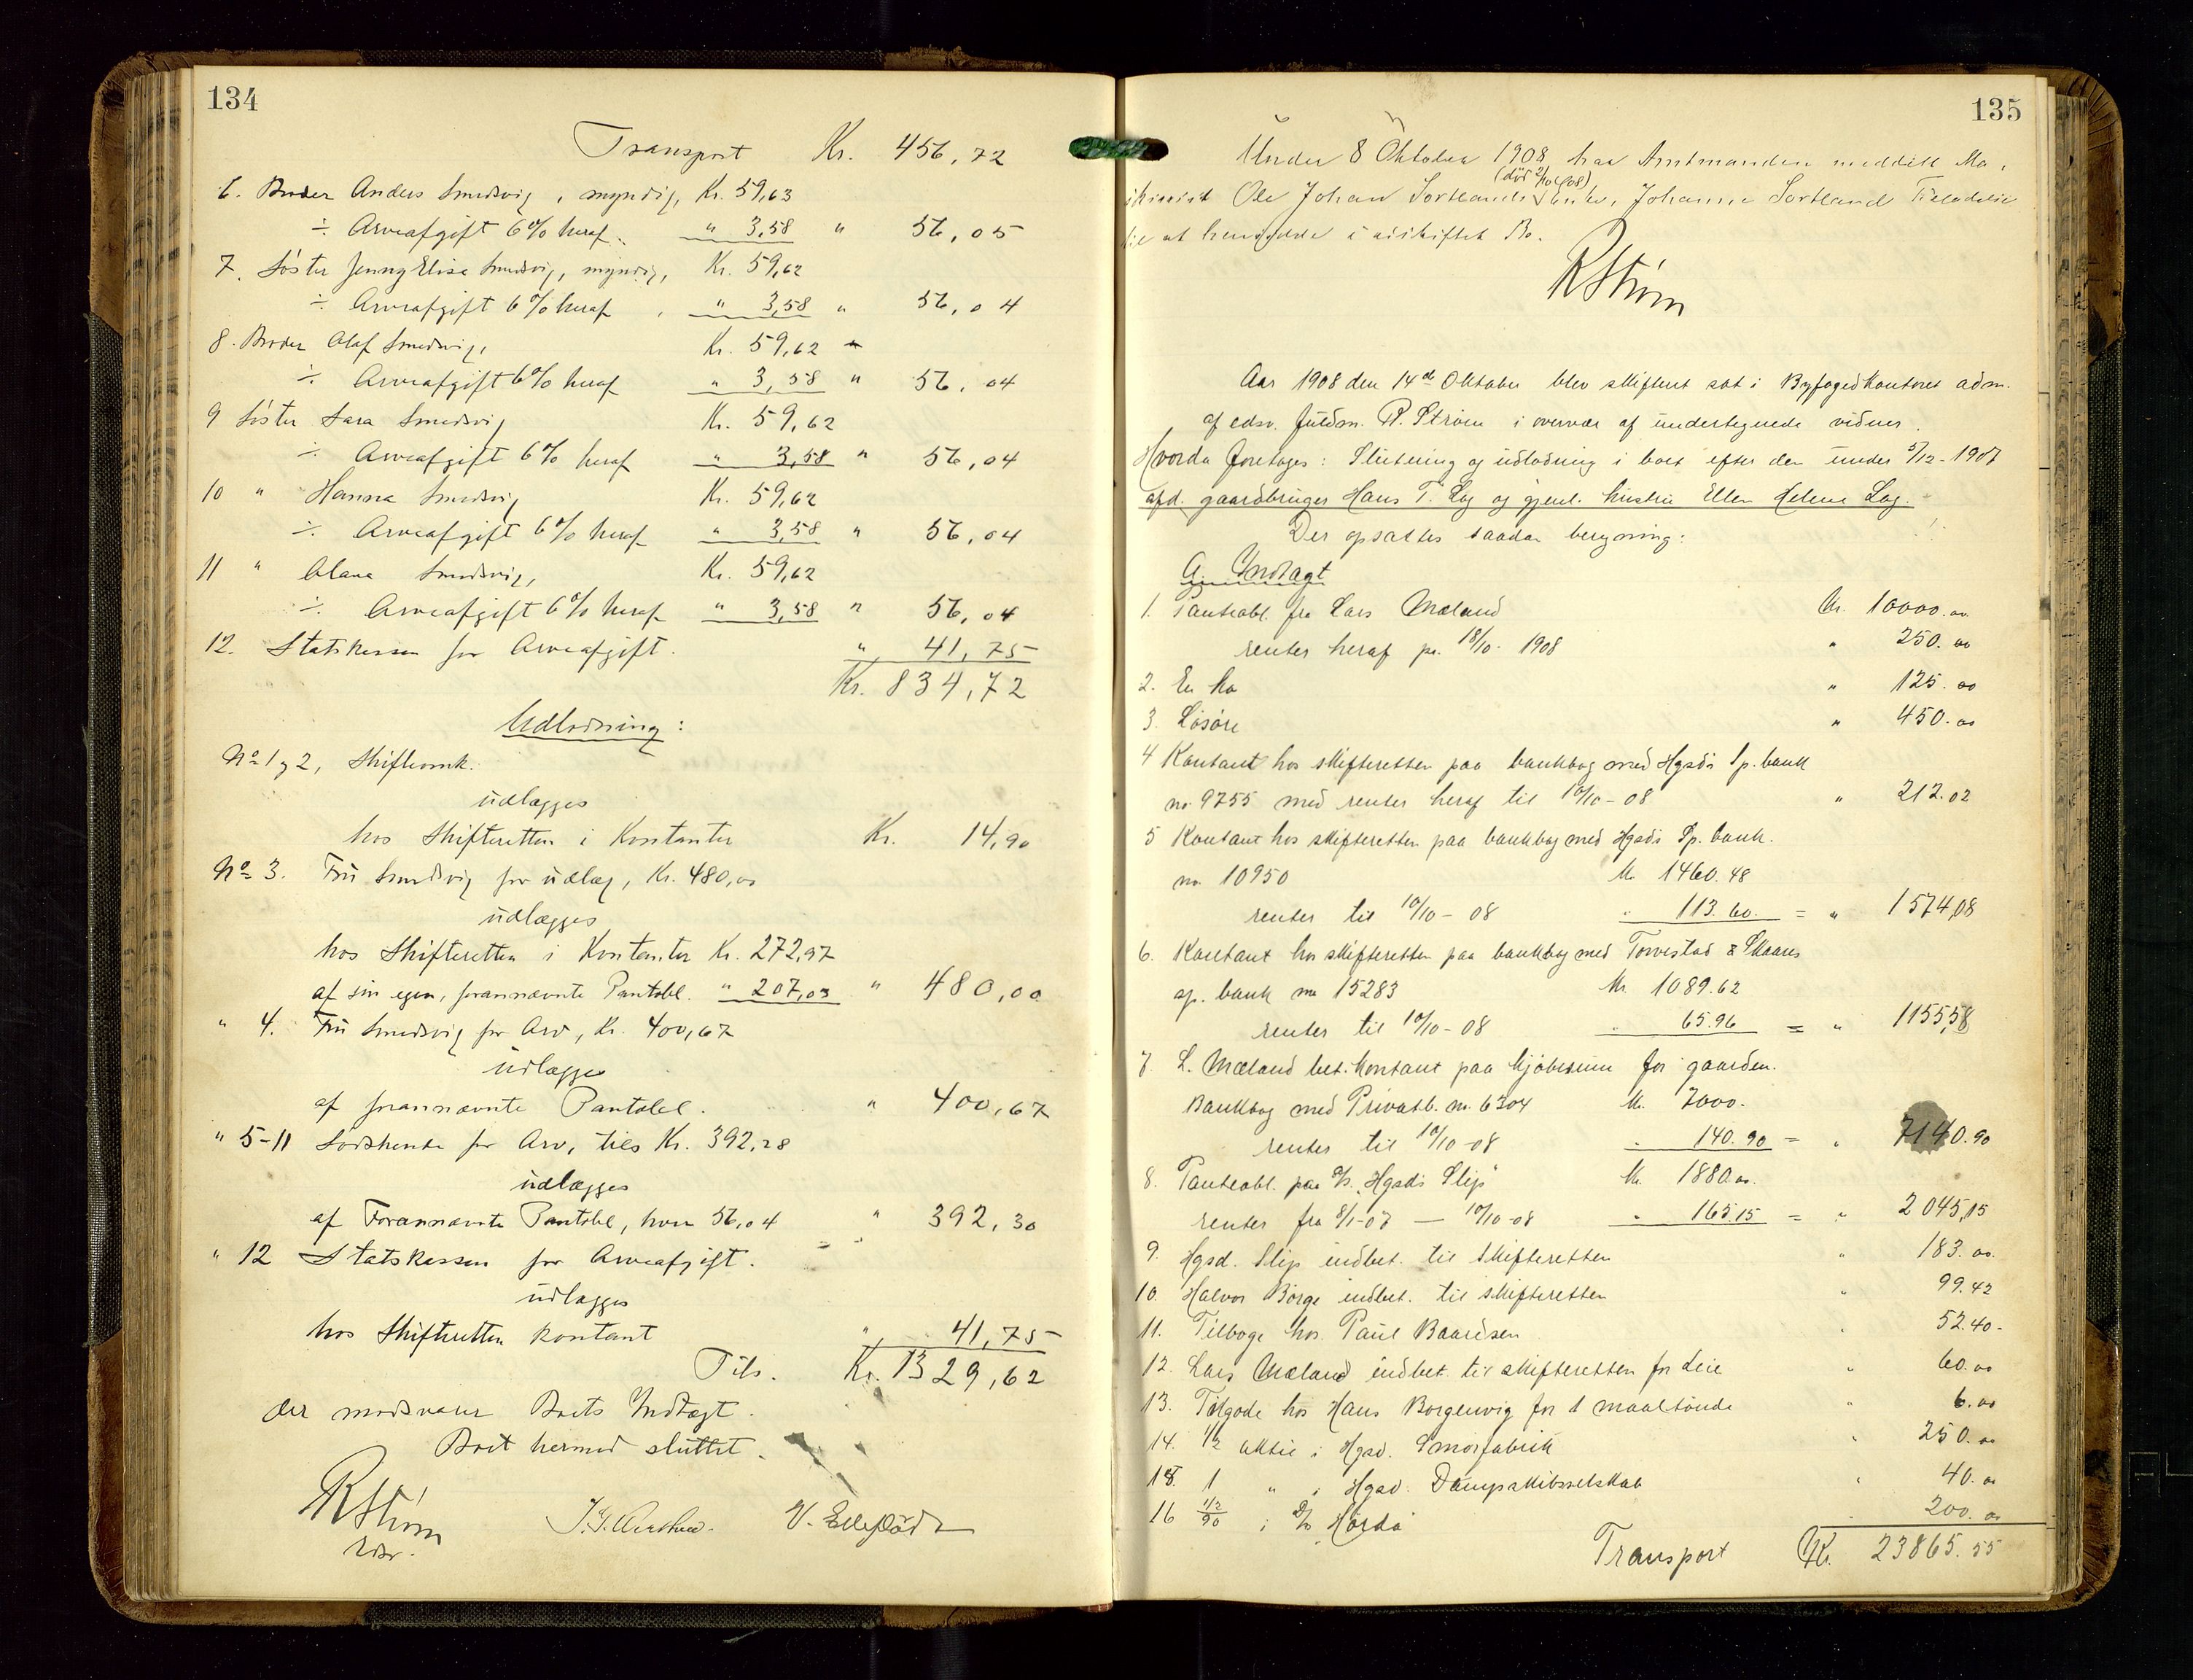 134
Transport Kr. 456,72
6. Broder Anders Smedsvig, myndig, Kr. 59,63
÷ Arveafgift 6% heraf " 3,58 " 56,05
7. Søster Jenny Elise Smedsvig, myndig, Kr. 59,62
÷ Arveafgift 6% heraf " 3,58 " 56,04
8. Broder Olaf Smedsvig, Kr. 59,62
÷ Arveafgift 6% heraf " 3,58 " 56,04
9 Søster Sara Smedsvig Kr. 59,62
÷ Arveafgift 6% heraf " 3,58 " 56,04
10 " Hanna Smedsvig Kr. 59,62
÷ Arveafgift 6% heraf " 3,58 " 56,04
11 " Olava Smedsvig, Kr. 59,62
÷ Arveafgift 6% heraf " 3,58 " 56,04
12. Statskassen for Arveafgift. " 41,75
Kr. 834,72
Udlodning:
No 1 & 2, Skifteomk.
udlægges
hos Skifteretten i Kontanter Kr. 14,90
No 3. Fru Smedsvig for udlæg, Kr. 480,00
udlægges
hos Skifteretten i Kontanter Kr. 272,97
af sin egen, forannævnte Pantobl. " 207,03 " 480,00
" 4. Fru Smedsvig for Arv, Kr. 400,67
udlægges
af forannævnte Pantobl. " 400,67
" 5-11 Sødskende for Arv, tils Kr. 392,28
udlægges
af Forannævnte Pantobl, hver 56,04 " 392,30
" 12 Statskassen for Arveafgift.
udlægges
hos Skifteretten kontant " 41,75
Tils. Kr. 1329,62
der modsvarer Boets Indtægt.
Boet hermed sluttet.
RStrøm
135
Under 8 Oktober 1908 har Amtmanden meddelt Ma-
skinist Ole Johan Sortlands (død 2/10 1908) Enke, Johanne Sortland Tilladelse
til at hensidde i uskiftet Bo.
RStrøm
Aar 1908 den 14de Oktober blev skifteret sat i Byfogedkontoret adm.
af edsv. fuldm. R. Strøm i overvær af undertegnede vidner.
Hvorda foretoges: Slutning og udlodning i boet efter den under 5/12-1907
afd. gaardbruger Hans T. Lag og gjenl. hustru Ellen Helene Lag.
Der opsattes saadan beregning:
A. Indtægt
1. Panteobl. fra Lars Mæland Kr. 10000.00
renter heraf pr. 18/10- 1908 " 250.00
2. En ko " 125.00
3. Løsøre " 450.00
4 Kontant hos skifteretten paa bankbog med Hgsds Sp. bank
no. 9755 med renter heraf til 10/10-08 " 212.02
5 Kontant hos skifteretten paa bankbog med Hgsds Sp. bank.
no. 10950 Kr. 1460.48
renter til 10/10-08 " 113.60 = " 1574,08
6. Kontant hos skifteretten paa bankbog med Torvestad & Skaares
sp. bank no 15283 Kr. 1089.62
renter til 10/10-08 65.96 = " 1155,58
7. L. Mæland bet. kontant paa kjøbesum for gaarden.
Bankbog med Privatb. no. 6304 Kr. 7000.
renter til 10/10-08 " 140.90 = " 7140.90
8. Panteobl. paa A/S. "Hgsds Slip" Kr. 1880.00.
renter fra 8/1-07 — 10/10-08 " 165.15 = " 2045,15
9. Hgsd. Slip indbet. til Skifteretten " 183.00.
10. Halvor Børge indbet. til skifteretten " 99.42
11. Tilbage hos Paul Baardsen " 52.40-
12. Lars Mæland indbet til skifteretten for Leie " 60.00
13. Tilgode hos Hans Borgenvig for 1 maaltønde " 6.00
14. 1/2 aktie i Hgsd. Smørfabrik " 250.00
15. 1 " i Hgsd. Dampskibsselskab " 40.00
16 1/2/90 i D/S "Hørda" 200.00
Transport Kr. 23865.55